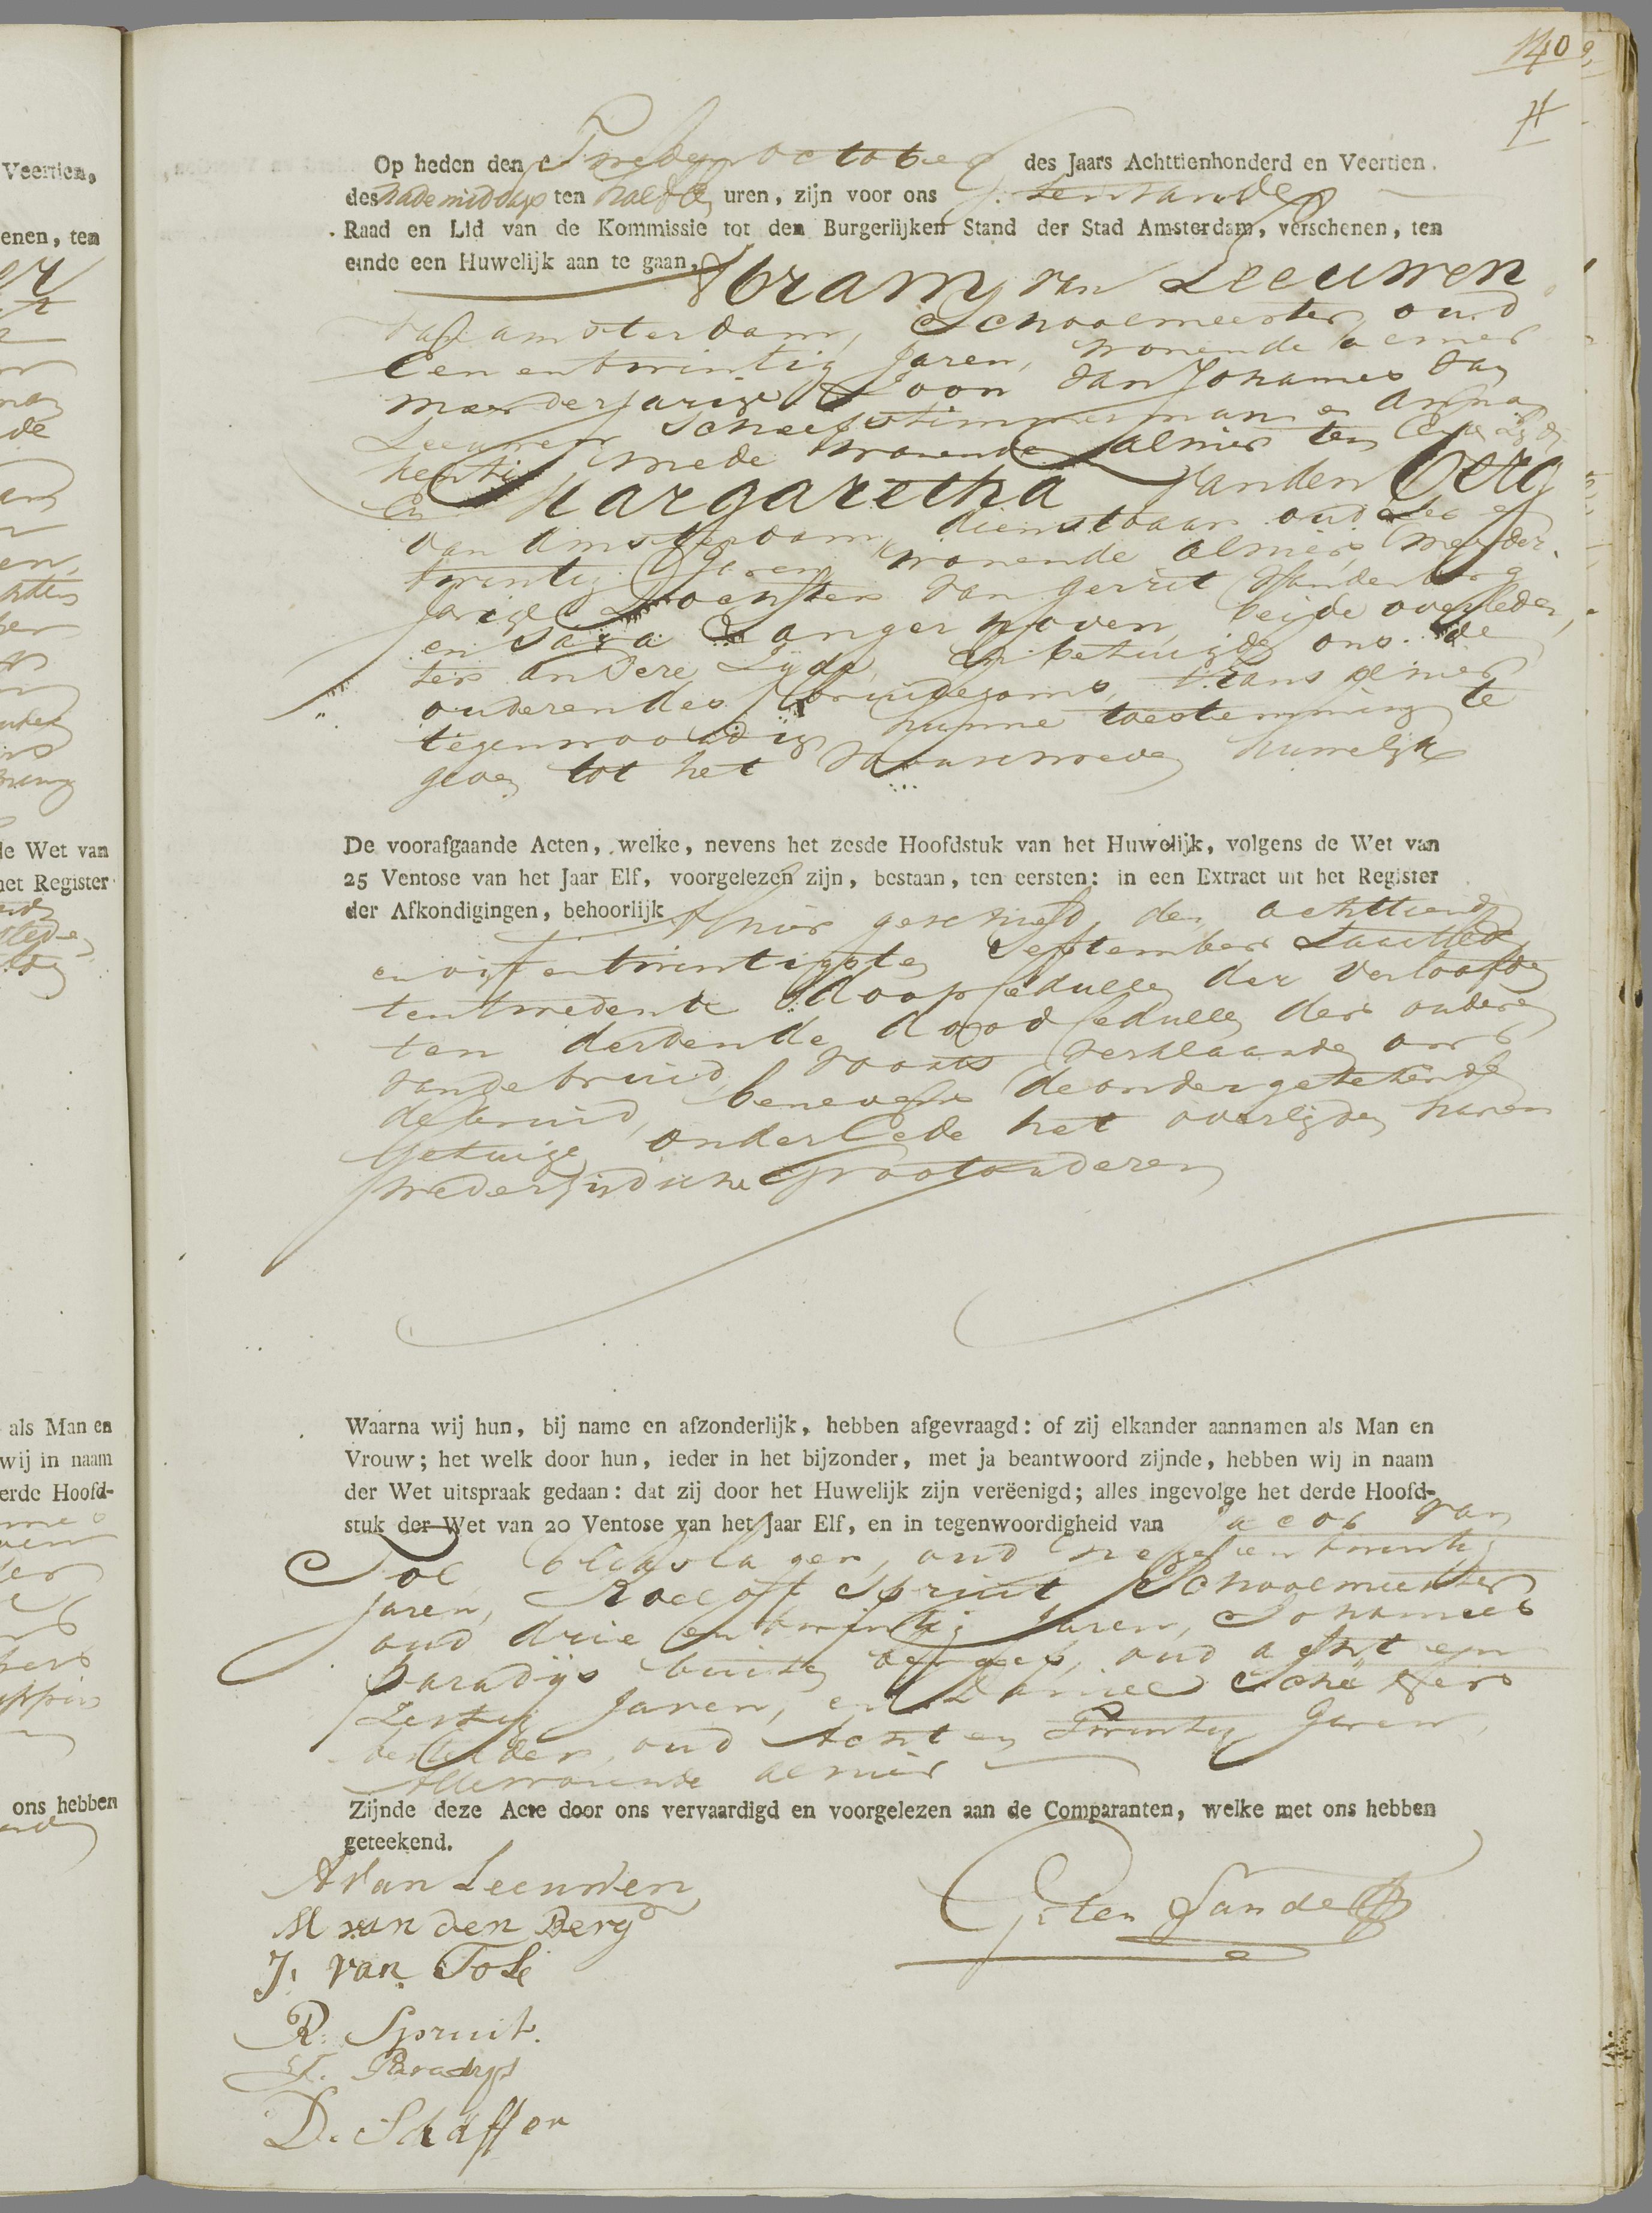 140
Op heden den Tweden october des Jaars Achttienhonderd en Veertien.
des nademiddags ten half uren, zijn voor ons ten Sande
Raad en Lid van de Kommissie tot den Burgerlijken Stand der Stad Amsterdam, verschenen, ten
einde een Huwelijk aan te gaan, Abram van Leeuwen
van amsterdam, Schoolmeester, oud
Een en twintig Jaren, wonende alhier
meerderjarige Zoon van Johannes van
Leeuwen Scheepstimmerman en Anna
mede wonende alhier ten Eenre Zyde
En Margaretha van den Berg
van Amsterdam, dienstbaar oud
twintig Jaren wonende alhier, meerder-
jarige Dochter van Gerrit van den berg
en Sara Langerhoven, beide overleden,
ter andere Zyde, En betuigde ons de
ouderen des bruidegoms, thans alhier
tegenwoordig hunne toestemming te
geven tot het voorschreven huwelijk
De voorafgaande Acten, welke, nevens het zesde Hoofdstuk van het Huwelijk, volgens de Wet van
25 Ventose van het Jaar Elf, voorgelezen zijn, bestaan, ten eersten: in een Extract uit het Register
der Afkondigingen, behoorlijk Alhier geschied, den achttiende
en vijf en twintigste September Laatstled
ten tweede de doopcedulle der Verloofde
ten derden de doodcedulle der ouderen
van de bruid, voorts verklaarde ons
de bruid, benevens de ondergetekende
Getuige onder Eede het overlijden haren
wederzijdsche Grootouderen
Waarna wij hun, bij name en afzonderlijk, hebben afgevraagd: of zij elkander aannamen als Man en
Vrouw; het welk door hun, ieder in het bijzonder, met ja beantwoord zijnde, hebben wij in naam
der Wet uitspraak gedaan: dat zij door het Huwelijk zijn vereenigd; alles ingevolge het derde Hoofd-
stuk der Wet van 20 Ventose van het Jaar Elf, en in tegenwoordigheid van Jacob van
Tol blikslager, oud negen en twintig
Jaren, Roeloff Spruit Schoolmeester
oud drie en twintig Jaren, Johannes
Paradijs buiten beroep, oud acht en
Zestig Jaren, en Daniel Schëffer
oud Acht en Twintig Jaren,
Alle wonende alhier
Zijnde deze Acte door ons vervaardigd en voorgelezen aan de Comparanten, welke met ons hebben
geteekend.
A van Leeuwen
M van den Berg
J. van Tol
R. Spruit.
J. Paradys
D. Schäffer
G. ten Sande